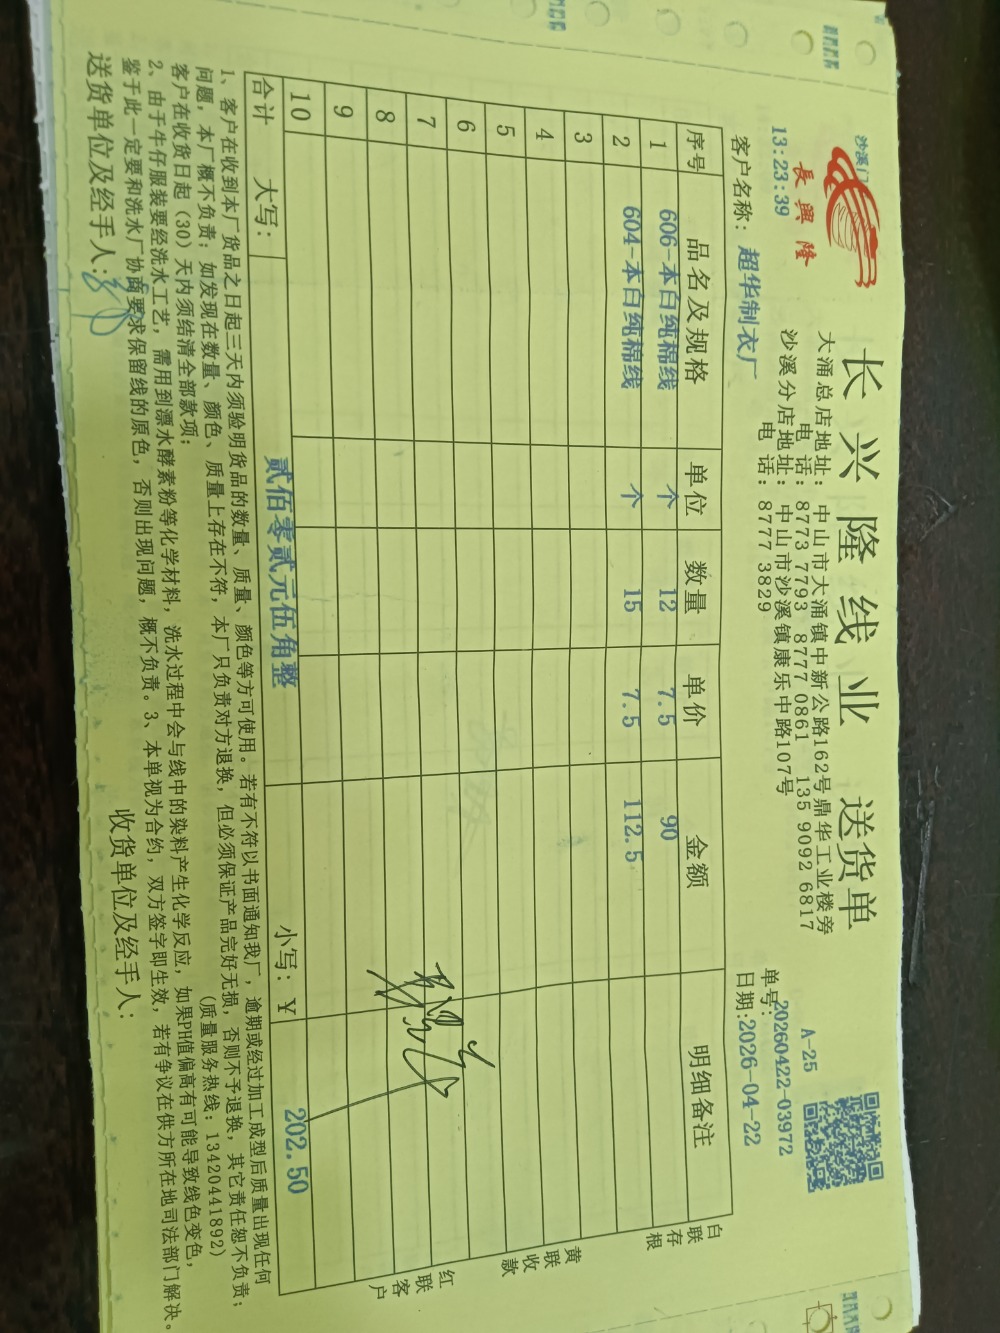 沙溪门
長興隆
长兴隆线业 送货单
大涌总店地址：中山市大涌镇中新公路162号鼎华工业楼旁
电 话：8773 7793 8777 0861 135 9092 6817
沙溪分店地址：中山市沙溪镇康乐中路107号
电 话：8777 3829
A-25
13:23:39
单号：20260422-03972
客户名称：超华制衣厂 日期：2026-04-22
序号 品名及规格 单位 数量 单价 金额 明细备注
1 606-本白纯棉线 个 12 7.5 90
2 604-本白纯棉线 个 15 7.5 112.5
3
4
5
6
7
8
9
10
合计 大写： 贰佰零贰元伍角整 小写：¥ 202.50
白联存根
黄联收款
红联客户
1、客户在收到本厂货品之日起三天内须验明货品的数量、质量、颜色等方可使用。若有不符以书面通知我厂，逾期或经过加工成型后质量出现任何
问题，本厂概不负责；如发现在数量、颜色、质量上存在不符，本厂只负责对方退换，但必须保证产品完好无损，否则不予退换，其它责任恕不负责；
客户在收货日起（30）天内须结清全部款项； （质量服务热线：13420441892）
2、由于牛仔服装要经洗水工艺，需用到漂水酵素粉等化学材料，洗水过程中会与线中的染料产生化学反应，如果PH值偏高有可能导致线色变色，
鉴于此一定要和洗水厂协商要求保留线的原色，否则出现问题，概不负责。3、本单视为合约，双方签字即生效，若有争议在供方所在地司法部门解决。
送货单位及经手人： 收货单位及经手人：